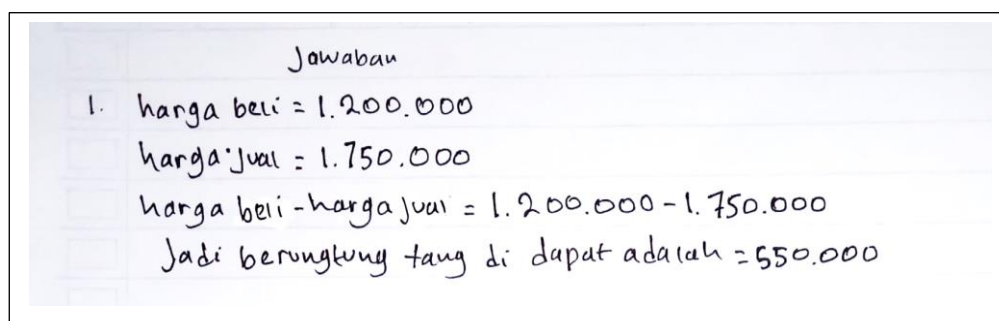 Jawaban
1. harga beli = 1.200.000
harga jual = 1.750.000
harga beli - harga jual = 1.200.000 - 1.750.000
Jadi berungtung tang di dapat adalah = 550.000